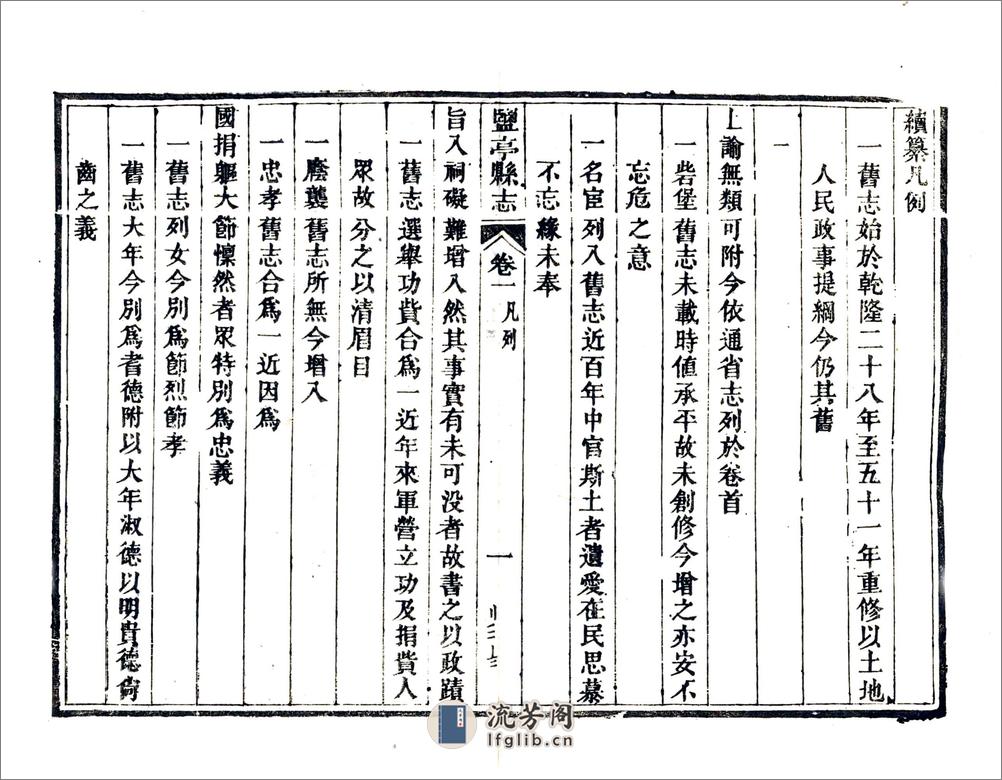 續纂凡例
一舊志始於乾隆二十八年至五十一年重修以土地
人民政事提綱今仍其舊
一
上諭無類可附今依通省志列於卷首
一砦堡舊志未載時値承平故未創修今增之亦安不
忘危之意
一名宦列入舊志近百年中官斯土者遺愛在民思慕
不忘緣未奉
鹽亭縣志 卷一 凡列 一
旨入祠礙難增入然其事實有未可没者故書之以政蹟
一舊志選舉功貲合爲一近年來軍營立功及捐貲人
眾故分之以清眉目
一廕襲舊志所無今增入
一忠孝舊志合爲一近因爲
國捐軀大節懍然者眾特別爲忠義
一舊志列女今別爲節烈節孝
一舊志大年今別爲耆德附以大年淑德以明貴德尙
齒之義
流芳阁
lfglib.cn